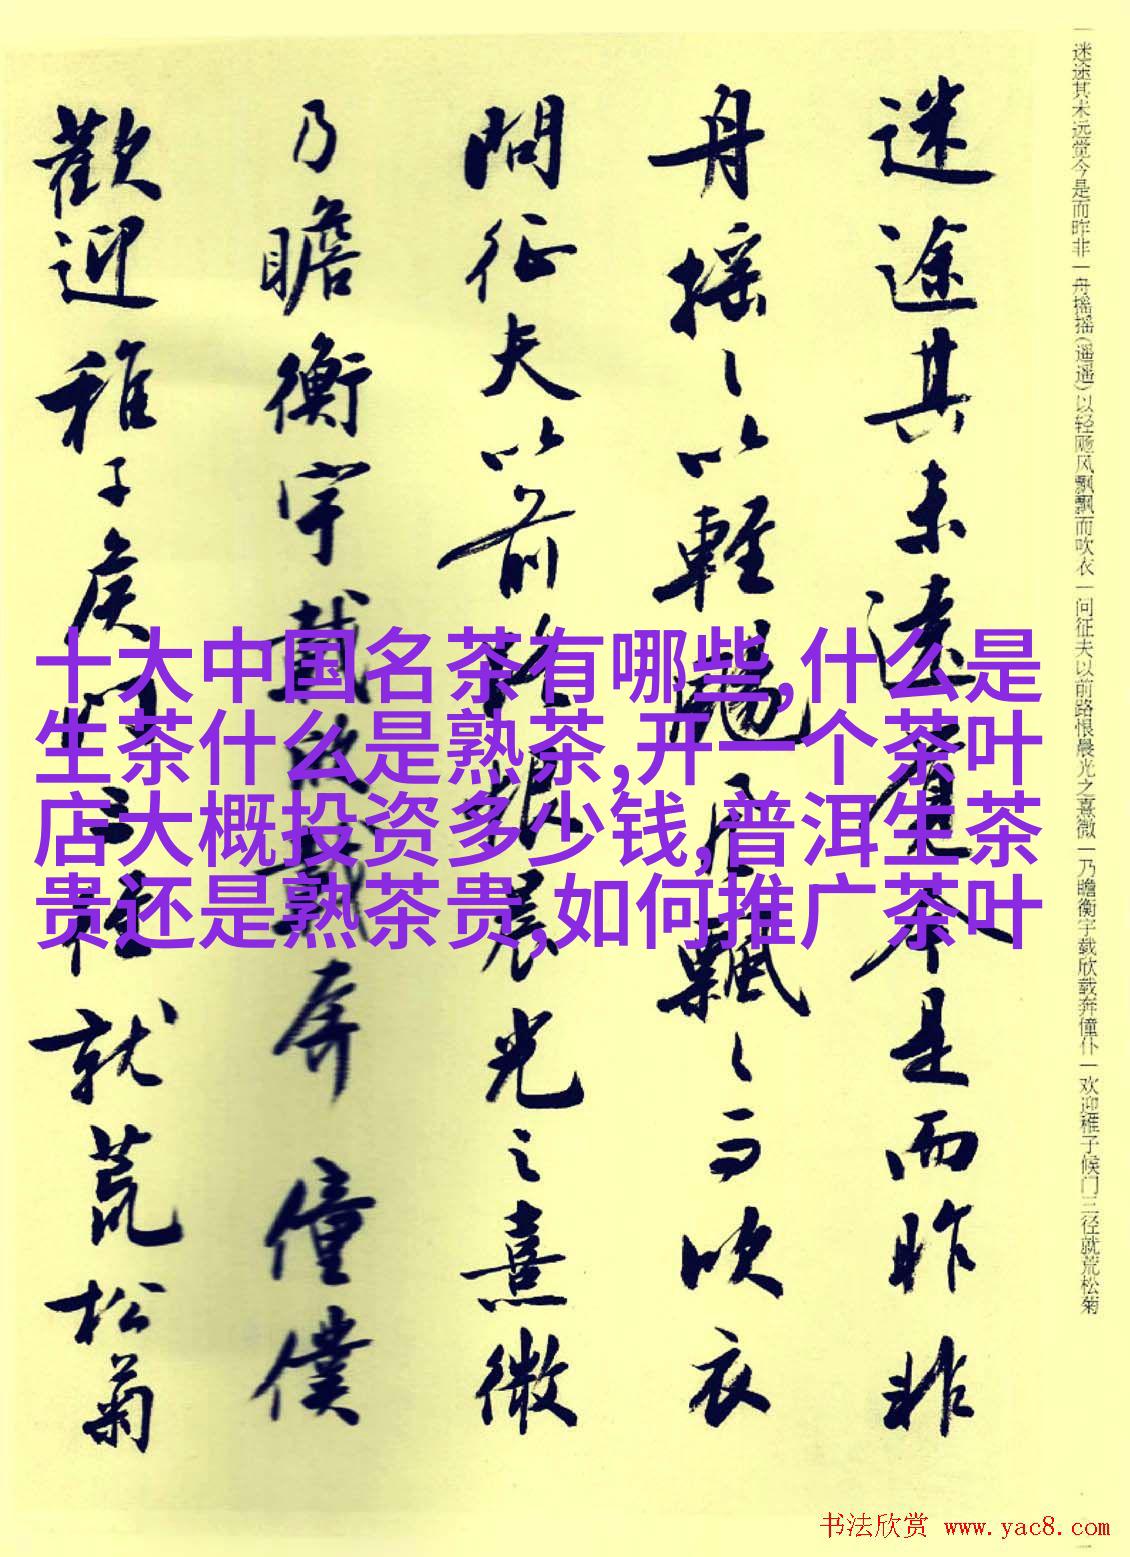 迷途其未遠覺今是而昨非
舟摇〻以輕颺風飄〻而吹衣
問征夫以前路恨晨光之熹微
乃瞻衡宇載欣載奔僮僕
歡迎稚子候門三徑就荒松菊
一迷途其未远觉今是而昨非一舟摇摇(遥遥)以轻飏风飘飘而吹衣一问征夫以前路恨晨光之熹微一乃瞻衡宇载欣载奔僮仆一欢迎稚子候门三径就荒松菊
十大中国名茶有哪些,什么是
生茶什么是熟茶,开一个茶叶
店大概投资多少钱,普洱生茶
贵还是熟茶贵,如何推广茶叶
书法欣赏 www.yac8.com